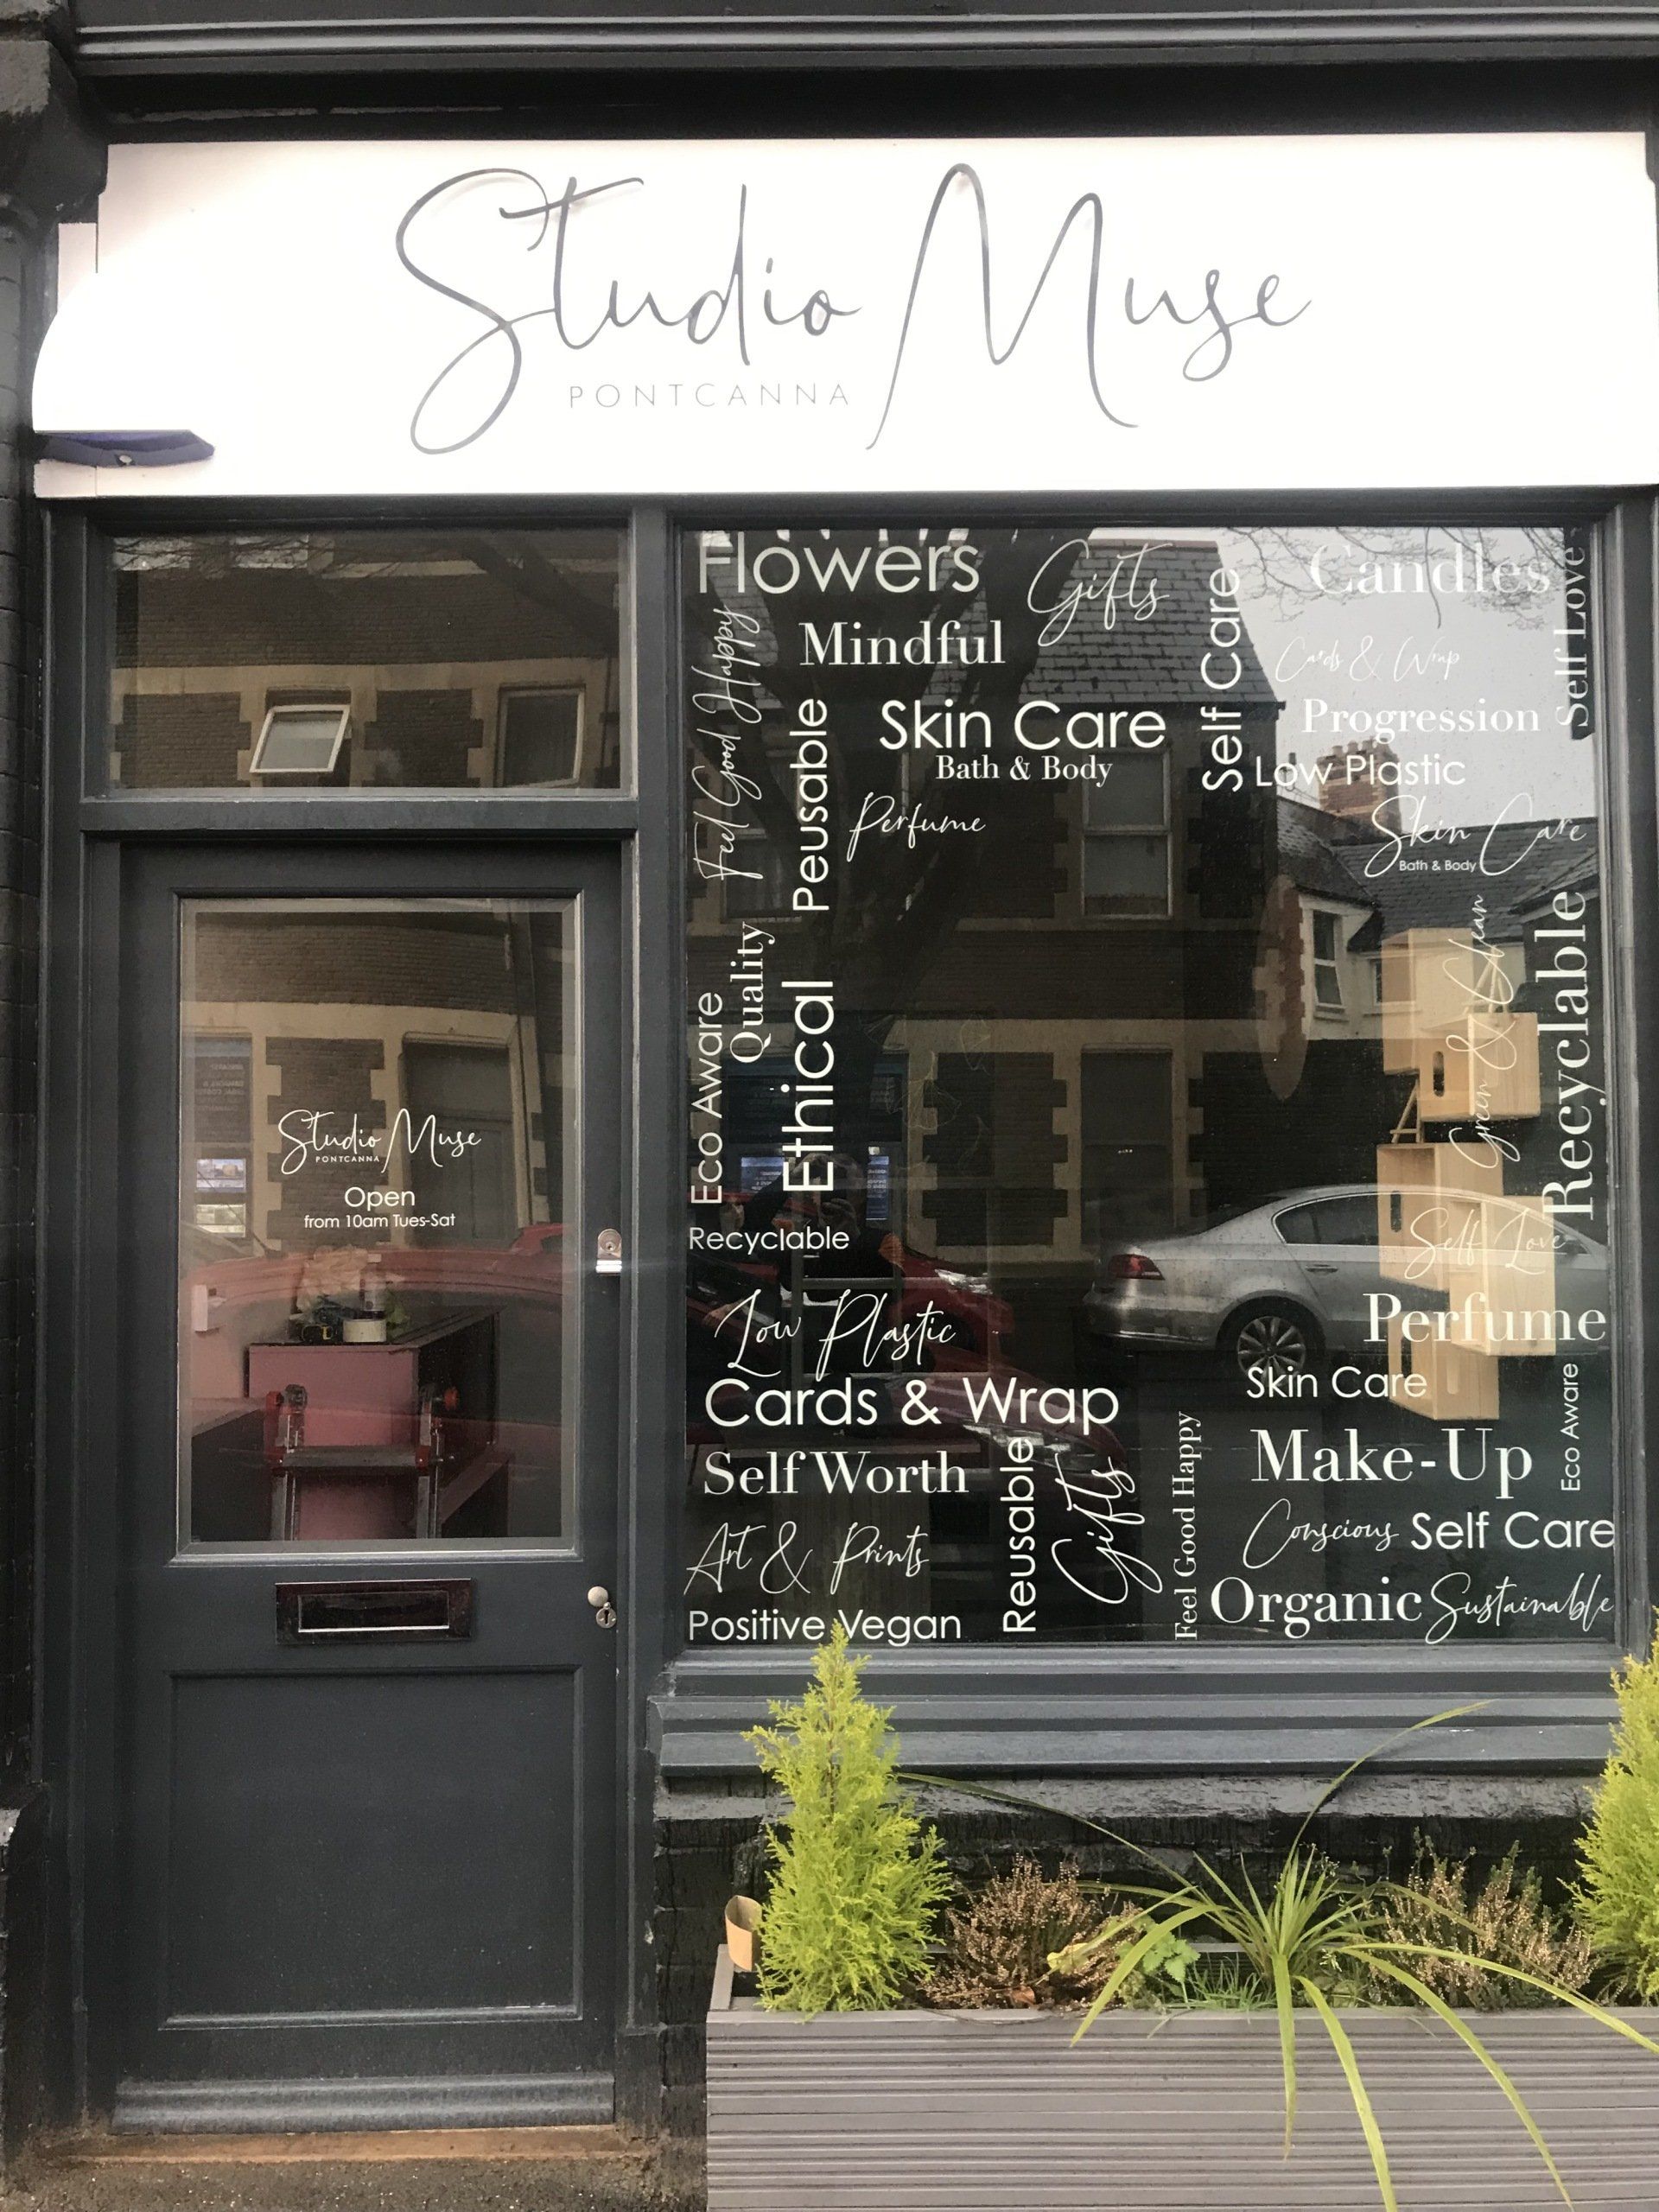 Studio Muse
PONTCANNA
Flowers
Gifts
Candles
Self Love
Feel Good Happy
Mindful
Self Care
Cards & Wrap
Peusable
Skin Care
Bath & Body
Progression
Low Plastic
Perfume
Skin Care
Bath & Body
Quality
Eco Aware
Ethical
Green & Clean
Recyclable
Studio Muse
PONTCANNA
Open
from 10am Tues-Sat
Recyclable
Self Love
Low Plastic
Perfume
Cards & Wrap
Skin Care
Eco Aware
Self Worth
Reusable
Gifts
Feel Good Happy
Make-Up
Art & Prints
Conscious Self Care
Positive Vegan
Organic Sustainable